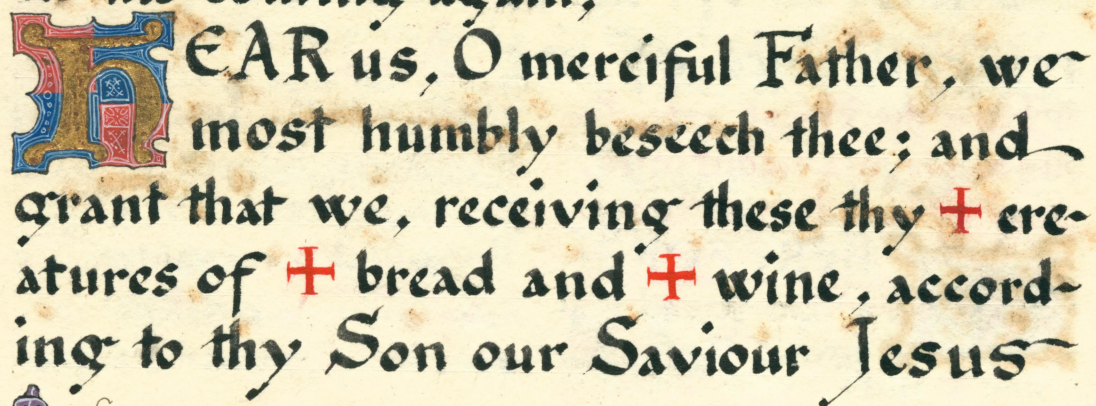 coming again;
HEAR us, O merciful Father, we
most humbly beseech thee; and
grant that we, receiving these thy ✠ cre-
atures of ✠ bread and ✠ wine, accord-
ing to thy Son our Saviour Jesus